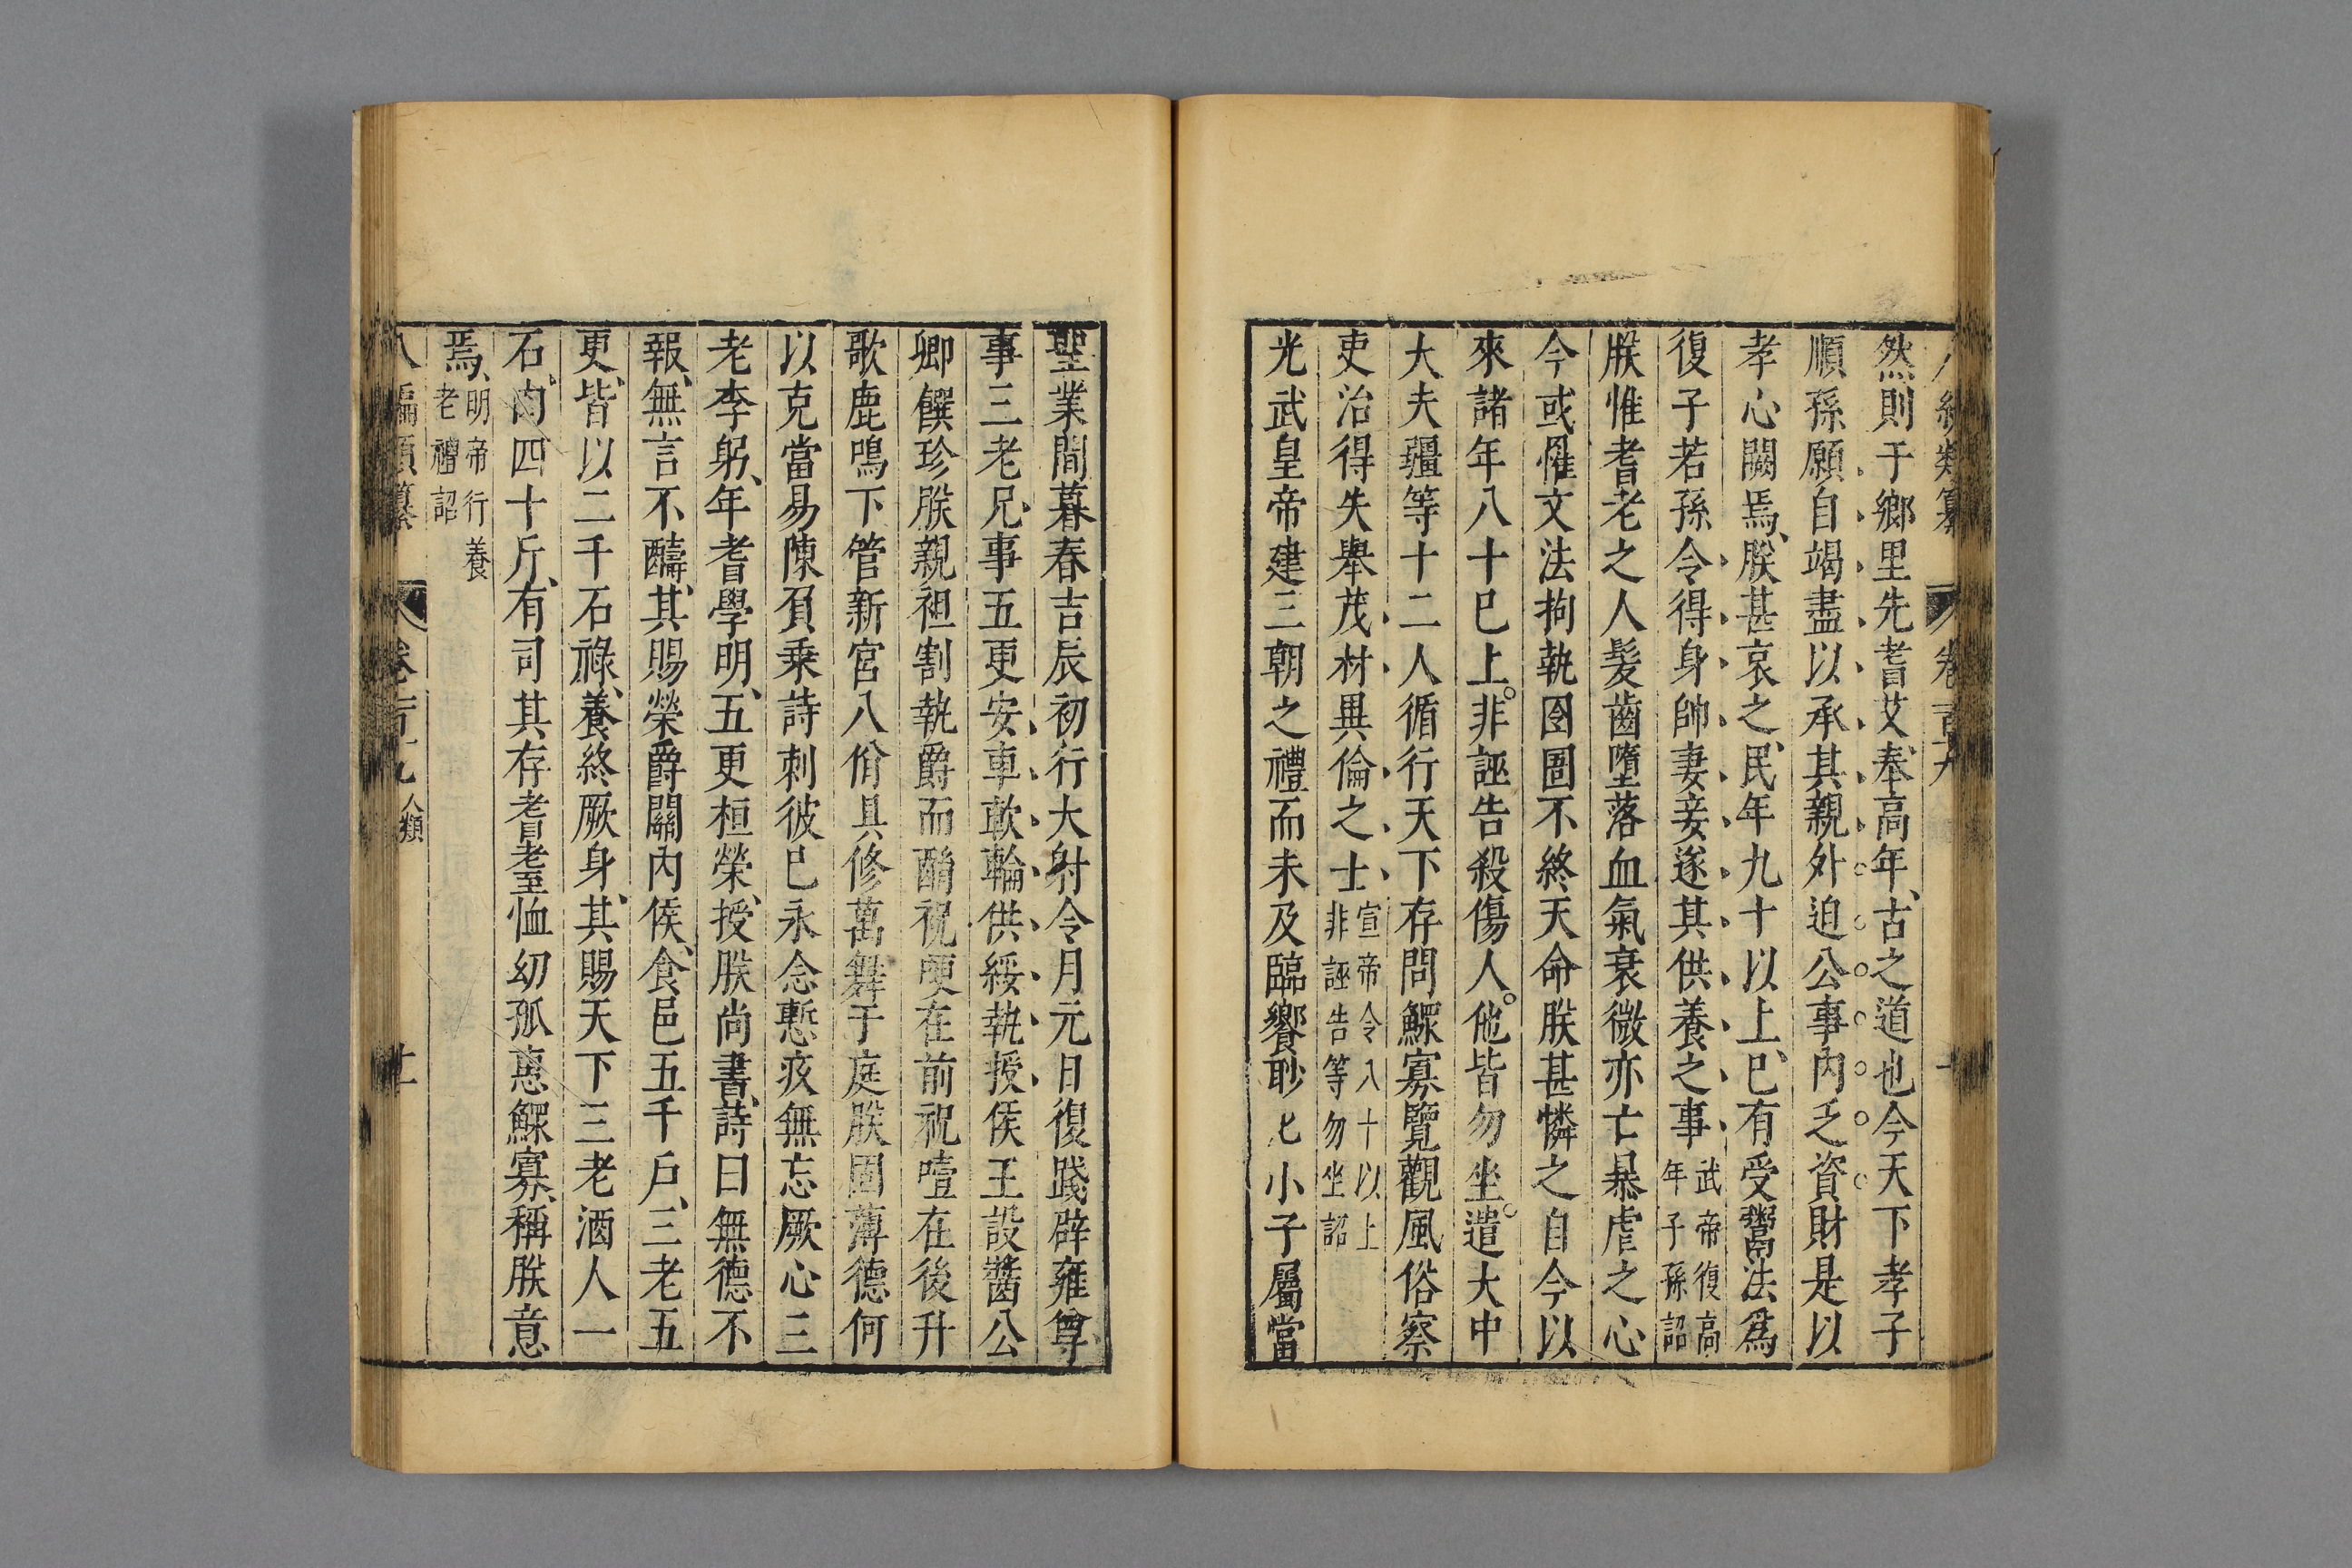 然則于鄉里先耆艾奉高年古之道也今天下孝子
順孫願自竭盡以承其親外迫公事內乏資財是以
孝心闕焉朕甚哀之民年九十以上巳有受鬻法爲
復子若孫令得身帥妻妾遂其供養之事武帝復高年子孫詔
朕惟耆老之人髮齒墮落血氣衰微亦亡暴虐之心
今或罹文法拘執囹圄不終天命朕甚憐之自今以
來諸年八十巳上非誣告殺傷人他皆勿坐遣大中
大夫疆等十二人循行天下存問鰥寡覽觀風俗察
吏治得失舉茂材異倫之士宣帝令八十以上非誣告等勿坐詔
光武皇帝建三朝之禮而未及臨饗眇眇小子屬當
聖業間暮春吉辰初行大射令月元日復踐辟雍尊
事三老兄事五更安車軟輪供綏執授侯王設醬公
卿饌珍朕親袒割執爵而酳祝哽在前祝噎在後升
歌鹿鳴下管新宮八佾具修萬舞于庭朕固薄德何
以克當易陳負乘詩刺彼巳永念慙疚無忘厥心三
老李躬年耆學明五更桓榮授朕尚書詩曰無德不
報無言不醻其賜榮爵關內侯食邑五千戶三老五
更皆以二千石祿養終厥身其賜天下三老酒人一
石肉四十斤有司其存耆耋恤幼孤惠鰥寡稱朕意
焉明帝行養老禮詔
八編類纂 卷 人類